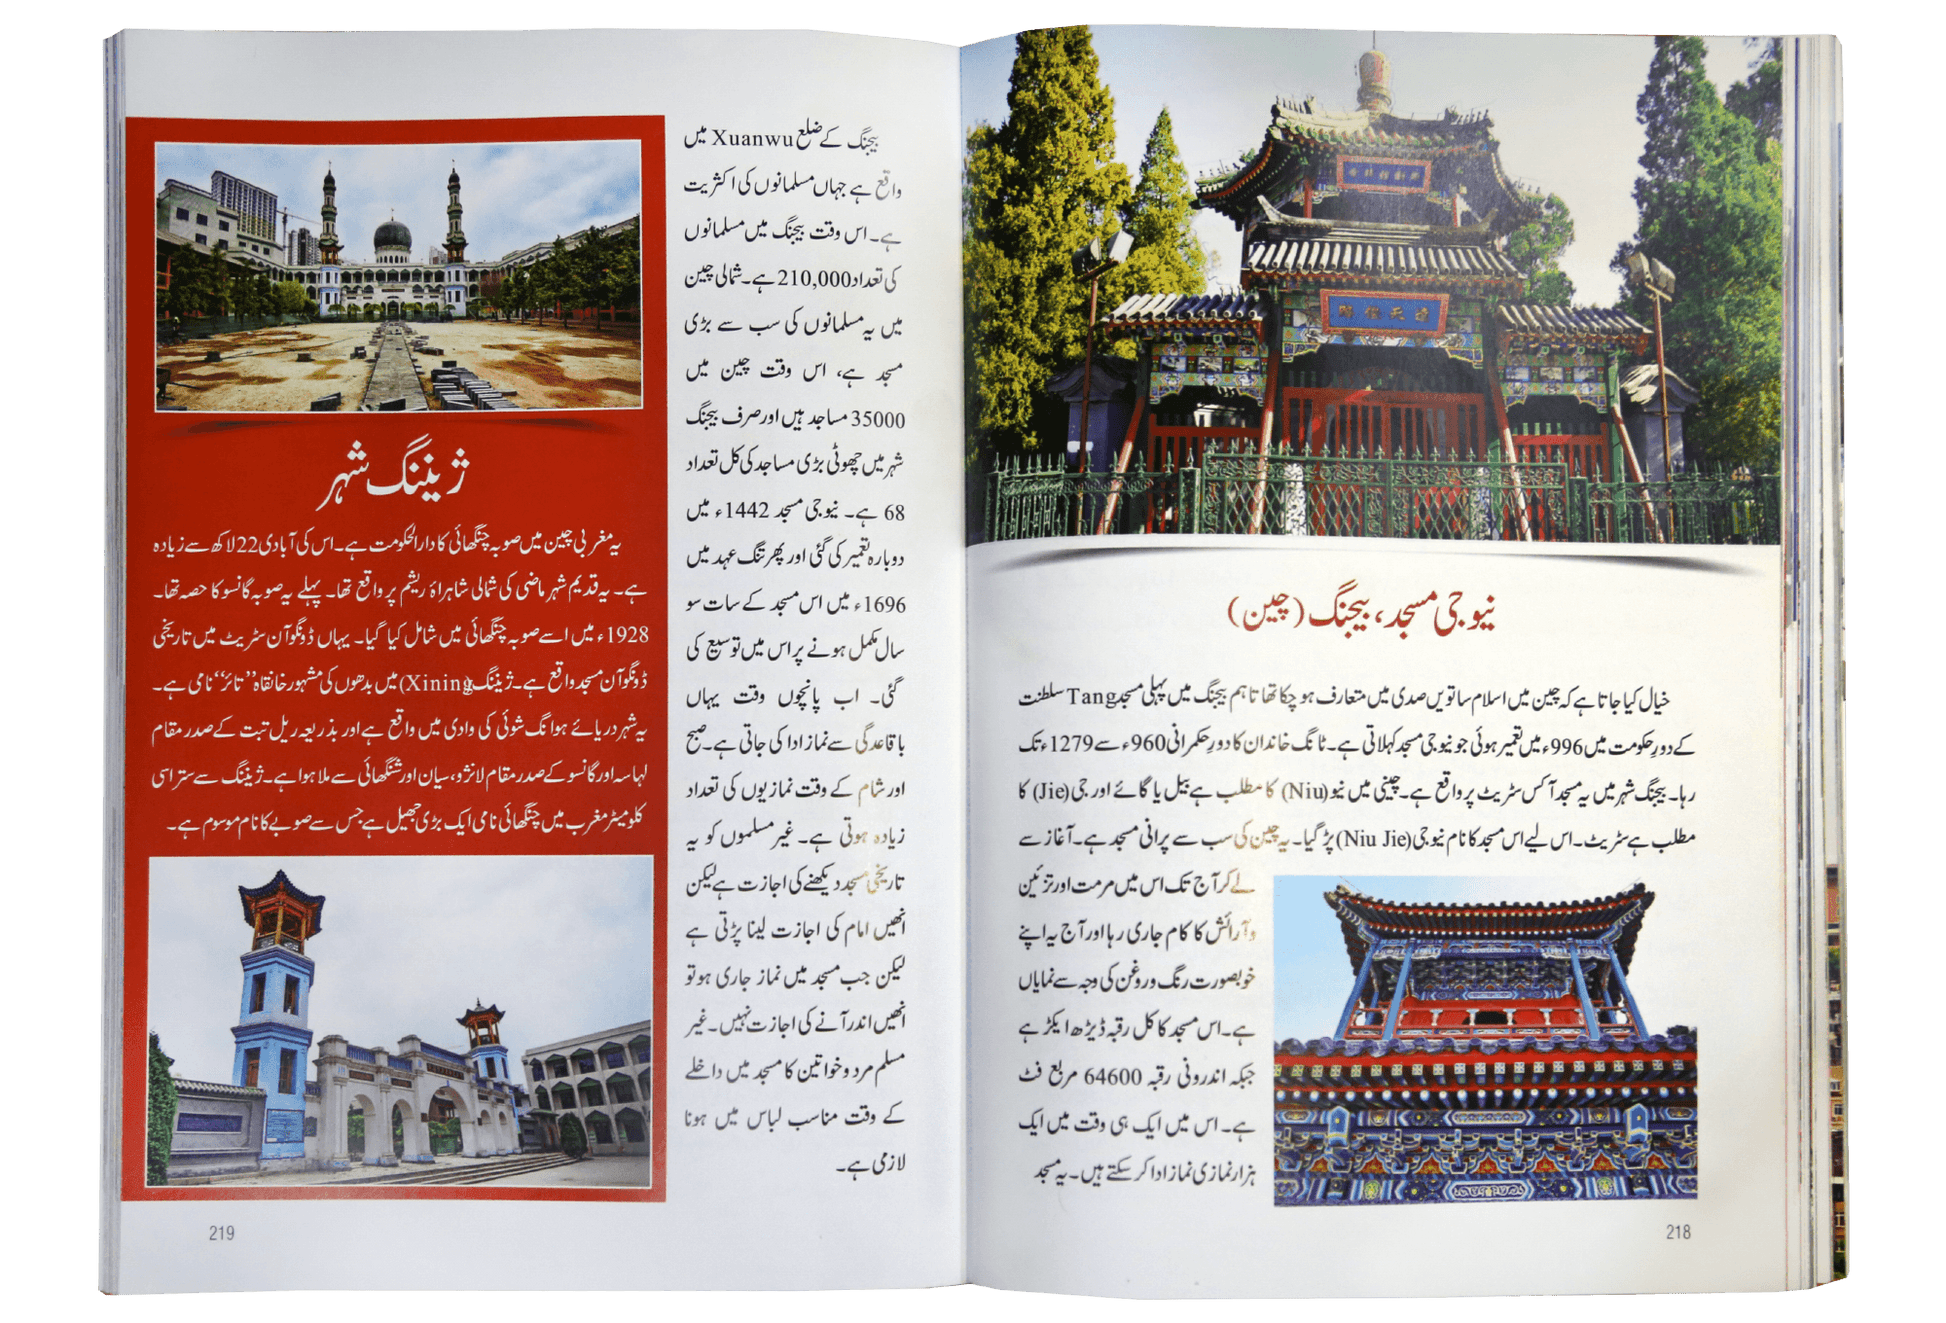 نیوجی مسجد، بیجنگ (چین)
خیال کیا جاتا ہے کہ چین میں اسلام ساتویں صدی میں متعارف ہو چکا تھا تاہم بیجنگ میں پہلی مسجد Tang سلطنت
کے دورِ حکومت میں 996ء میں تعمیر ہوئی جو نیوجی مسجد کہلاتی ہے۔ ٹانگ خاندان کا دورِ حکمرانی 960ء سے 1279ء تک
رہا۔ بیجنگ شہر میں یہ مسجد آکس سٹریٹ پر واقع ہے۔ چینی میں نیو (Niu) کا مطلب ہے بیل یا گائے اور جی (Jie) کا
مطلب ہے سٹریٹ۔ اس لیے اس مسجد کا نام نیوجی (Niu Jie) پڑ گیا۔ یہ چین کی سب سے پرانی مسجد ہے۔ آغاز سے
لے کر آج تک اس میں مرمت اور تزئین
و آرائش کا کام جاری رہا اور آج یہ اپنے
خوبصورت رنگ و روغن کی وجہ سے نمایاں
ہے۔ اس مسجد کا کل رقبہ ڈیڑھ ایکڑ ہے
جبکہ اندرونی رقبہ 64600 مربع فٹ
ہے۔ اس میں ایک ہی وقت میں ایک
ہزار نمازی نماز ادا کر سکتے ہیں۔ یہ مسجد
218
بیجنگ کے ضلع Xuanwu میں
واقع ہے جہاں مسلمانوں کی اکثریت
ہے۔ اس وقت بیجنگ میں مسلمانوں
کی تعداد 210,000 ہے۔ شمالی چین
میں یہ مسلمانوں کی سب سے بڑی
مسجد ہے، اس وقت چین میں
35000 مساجد ہیں اور صرف بیجنگ
شہر میں چھوٹی بڑی مساجد کی کل تعداد
68 ہے۔ نیوجی مسجد 1442ء میں
دوبارہ تعمیر کی گئی اور پھر تنگ عہد میں
1696ء میں اس مسجد کے سات سو
سال مکمل ہونے پر اس میں توسیع کی
گئی۔ اب پانچوں وقت یہاں
باقاعدگی سے نماز ادا کی جاتی ہے۔ صبح
اور شام کے وقت نمازیوں کی تعداد
زیادہ ہوتی ہے۔ غیر مسلموں کو یہ
تاریخی مسجد دیکھنے کی اجازت ہے لیکن
انھیں امام کی اجازت لینا پڑتی ہے
لیکن جب مسجد میں نماز جاری ہو تو
انھیں اندر آنے کی اجازت نہیں۔ غیر
مسلم مرد و خواتین کا مسجد میں داخلے
کے وقت مناسب لباس میں ہونا
لازمی ہے۔
ژیننگ شہر
یہ مغربی چین میں صوبہ چنگھائی کا دارالحکومت ہے۔ اس کی آبادی 22 لاکھ سے زیادہ
ہے۔ یہ قدیم شہر ماضی کی شمالی شاہراۂ ریشم پر واقع تھا۔ پہلے یہ صوبہ گانسو کا حصہ تھا۔
1928ء میں اسے صوبہ چنگھائی میں شامل کیا گیا۔ یہاں ڈونگوآن سٹریٹ میں تاریخی
ڈونگوآن مسجد واقع ہے۔ ژیننگ (Xining) میں بدھوں کی مشہور خانقاہ ”تائر“ نامی ہے۔
یہ شہر دریائے ہوانگ شوئی کی وادی میں واقع ہے اور بذریعہ ریل تبت کے صدر مقام
لہاسہ اور گانسو کے صدر مقام لانژو، سیان اور شنگھائی سے ملا ہوا ہے۔ ژیننگ سے ستراسی
کلومیٹر مغرب میں چنگھائی نامی ایک بڑی جھیل ہے جس سے صوبے کا نام موسوم ہے۔
219